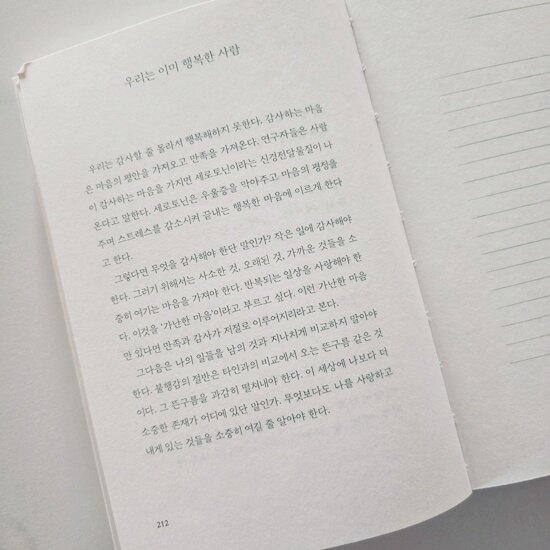 우리는 이미 행복한 사람
우리는 감사할 줄 몰라서 행복해하지 못한다. 감사하는 마음
은 마음의 평안을 가져오고 만족을 가져온다. 연구자들은 사람
이 감사하는 마음을 가지면 세로토닌이라는 신경전달물질이 나
온다고 말한다. 세로토닌은 우울증을 막아주고 마음의 평정을
주며 스트레스를 감소시켜 끝내는 행복한 마음에 이르게 한다
고 한다.
그렇다면 무엇을 감사해야 한단 말인가? 작은 일에 감사해야
한다. 그러기 위해서는 사소한 것, 오래된 것, 가까운 것들을 소
중히 여기는 마음을 가져야 한다. 반복되는 일상을 사랑해야 한
다. 이것을 '가난한 마음'이라고 부르고 싶다. 이런 가난한 마음
만 있다면 만족과 감사가 저절로 이루어지리라고 본다.
그다음은 나의 일들을 남의 것과 지나치게 비교하지 말아야
한다. 불행감의 절반은 타인과의 비교에서 오는 뜬구름 같은 것
이다. 그 뜬구름을 과감히 떨쳐내야 한다. 이 세상에 나보다 더
소중한 존재가 어디에 있단 말인가. 무엇보다도 나를 사랑하고
내게 있는 것들을 소중히 여길 줄 알아야 한다.
212